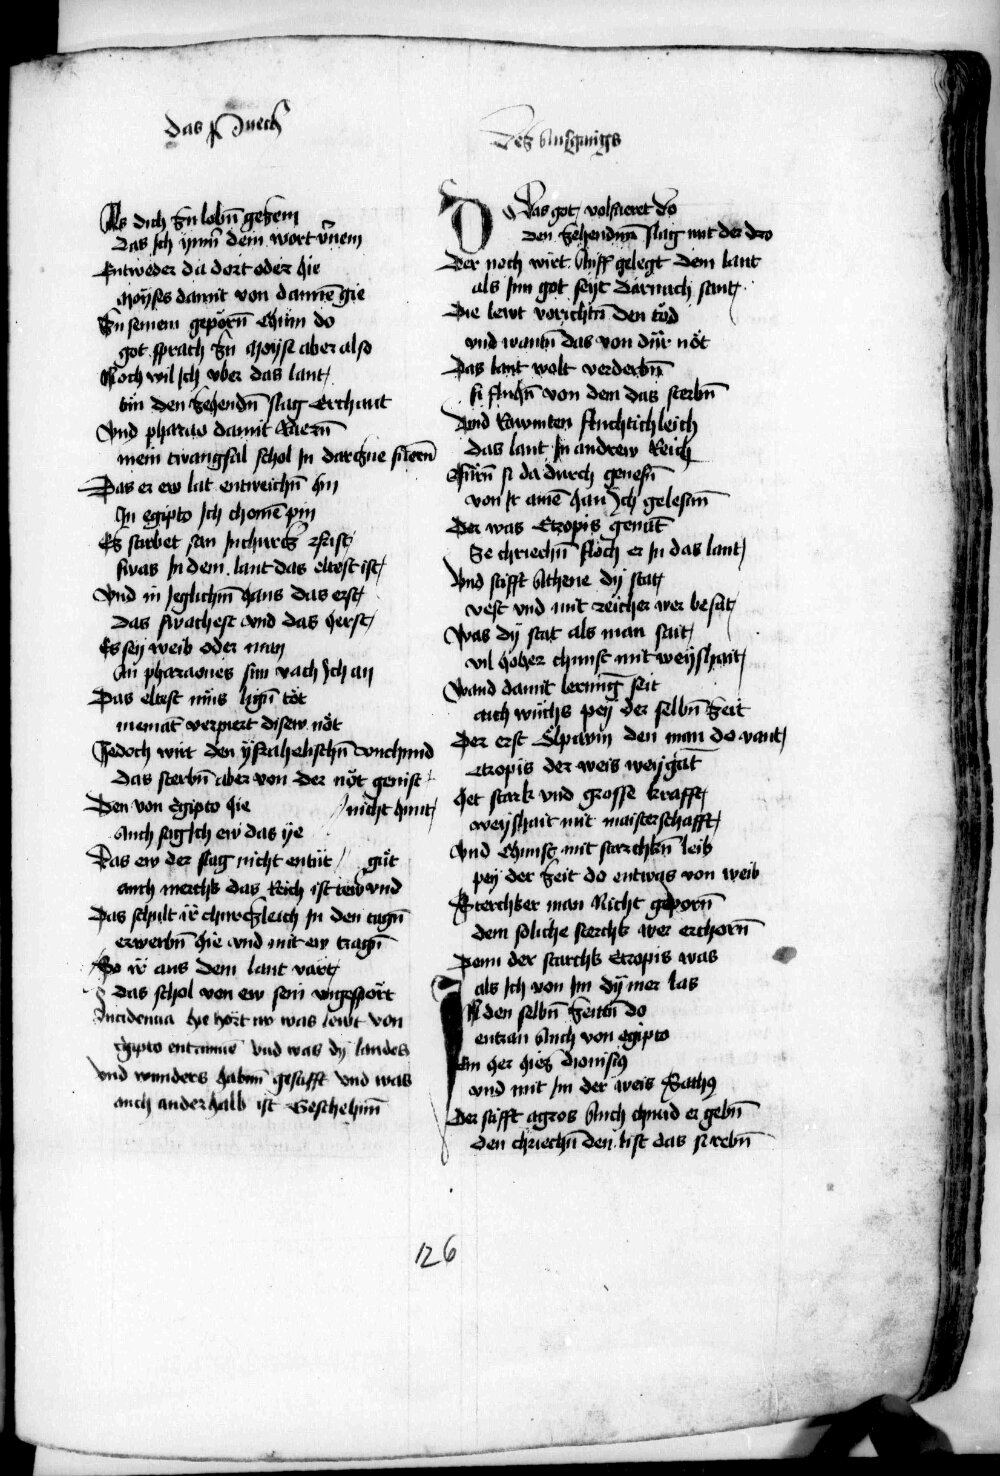 Das Puech
Des Auszgangs
Als dich zu lobn̄ gezem
Das Ich ymm̄ dem wort v̄nem
Entweder da dort oder hie
Moyses damit von dannē gie
Zu seinem gepörn̄ chum do
got sprach zu Moyse aber also
Noch wil Ich vber das lant
ein den zehendn̄ slag Erchant
Vnd pharao damit
mein twangsal schol In dar
Das er ew lat entweichn̄ hin
In egipto Ich chomē pin
Es starbet san In churcz frist
swas In dem lant das eltest ist
Vnd in Ieglichm̄ haus das erst
Das swachest vnd das herst
Es sey weib oder man
An pharaones sun vach Ich an
Das eltest mus lign̄ töt
niemāt verpiert disew nöt
Iedoch wirt den ysrahelischn̄ vnchund
Das sterbn̄ aber von der nöt genist
Den von Egipto hie nicht hint
Auch sag Ich ew das ye
Das ew der slag nicht entüt gůt
auch merchk das Reich ist vnd
Das schult ir churczleich In den tagn̄
erwerbn̄ hie vnd mit ew tragn̄
So ir aus dem lant vart
das schol von ew sein vngespört
Incidencia hie hört nv was lewt von
egipto entrunnē vnd was dy landes
vnd wunders habm̄ gestifft vnd was
auch anderhalb ist Geschehm̄
Das got volfueret do
Den zehendnn̄ slag mit der dro
Der noch wirt Auff gelegt dem lant
als Im got seyt Darnach sant
Die lewt vorichtn̄ den töd
vnd wantn̄ das von dur nöt
Das lant wolt verderbn̄
si fluhn̄ von dem das sterbn̄
Vnd Rawmten fluchtichleich
Das lant In andrew Reich
Fůrn̄ si da durch genesn̄
von Ir ainē han Ich gelesnn̄
Der was Etropis genāt
Ze chriechn̄ floch er In das lant
Vnd stifft Athene dy stat
vest vnd mit reicher wer besat
Was dy stat als man sait
vil hoher chunst mit weyshait
Wand damit lernūg seit
auch wuchs pey der selbn̄ zeit
Der erst Ölpawm den man do vant
Etropis der weis weygāt
Het stark vnd grosse krafft
weyshait mit maisterschafft
Vnd Chunst mit starchkn̄ leib
pey der zeit do entwas von weib
Sterchker man Nicht geporn̄
dem soliche sterchk wer erchorn̄
Denn der starchk Etropis was
als Ich von Im dy mer las
In den selbn̄ zeitn̄ do
entran Auch von egipto
Ein her hies Dionisius
vnd mit Im der weis Bathus
Der stifft agros Auch chund er gebn̄
den chriechn̄ den list das si rebn̄
126